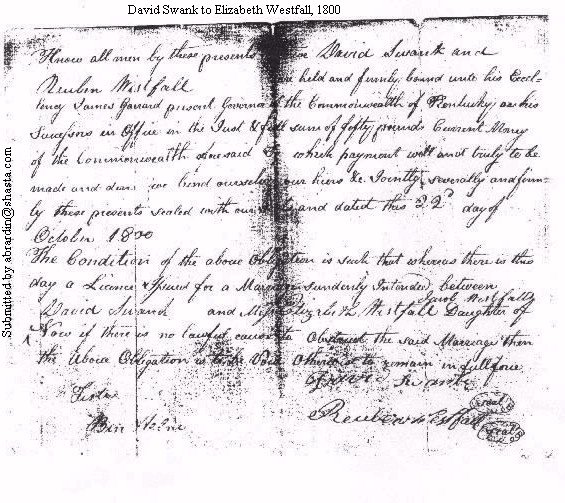 David Swank to Elizabeth Westfall, 1800
Submitted by abrardin@shasta.com
Know all men by these presents we David Swank and
Reubin Westfall are held and firmly bound unto his Excel-
lency James Garrard present Governor of the Commonwealth of Kentucky, or his
Successors in Office in the Just & full sum of fifty pounds Current Money
of the Commonwealth aforesaid To which payment well and truly to be
made and done we bind ourselves our heirs &c. Jointly severally and firm-
ly these presents sealed with our and dated this 22d day of
October 1800
The Condition of the above Obligation is such that whereas there is this
day a Licence Issued for a Marriage Intended between
David Swank and Miss Elizabeth Westfall Daughter of
Jacob Westfall
Now if there is no lawful cause to Obstruct the said Marriage then
the Above Obligation is to be Void Otherwise to remain in full force
Teste
David Swank
Ben
Reuben Westfall
Seal
Seal